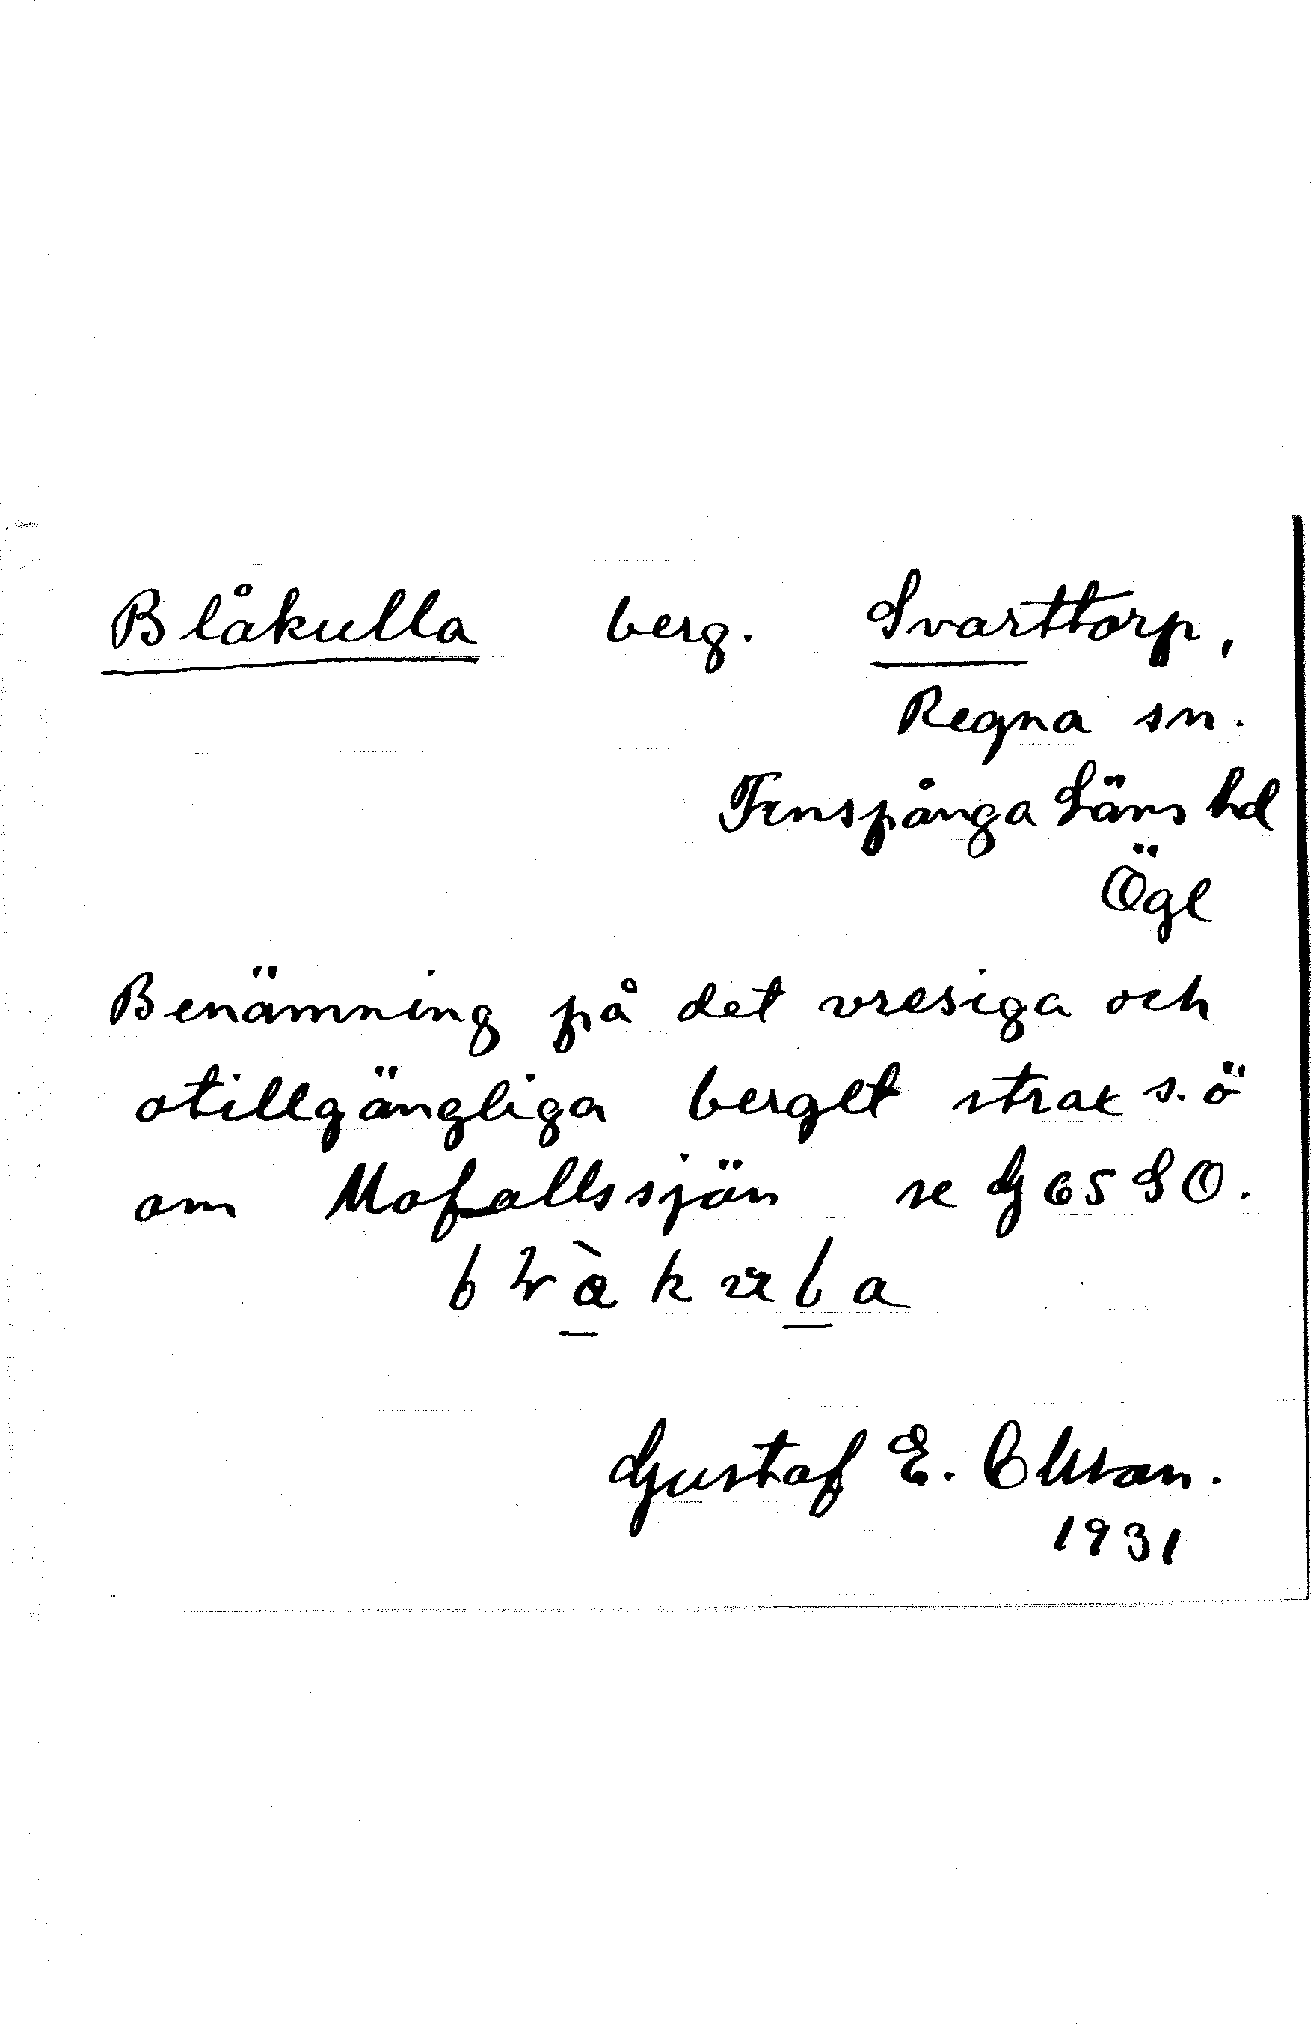 Blåkulla berg. Svarttorp,
Regna sn.
Finspånga Läns hd
Ögl
Benämning på det vresiga och
otillgängliga berget strax s.ö
om Mofallssjön se G 65 SO.
Gustaf E. Olsson.
1931